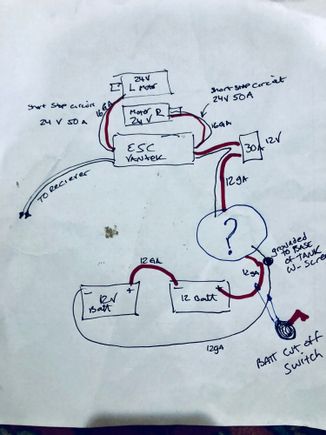 24V
L Motor
short stop circuit
24 V 50A
16ga
Motor R
24V
short stop circuit
24 V 50A
16GA
ESC
VANTEK
30A
12V
TO RECIEVER
12ga
?
grounded
TO BASE
of TANK
W- Screw
12GA
12ga
- +
12V
Batt
- +
12 Batt
12ga
BATT CUT OFF
Switch